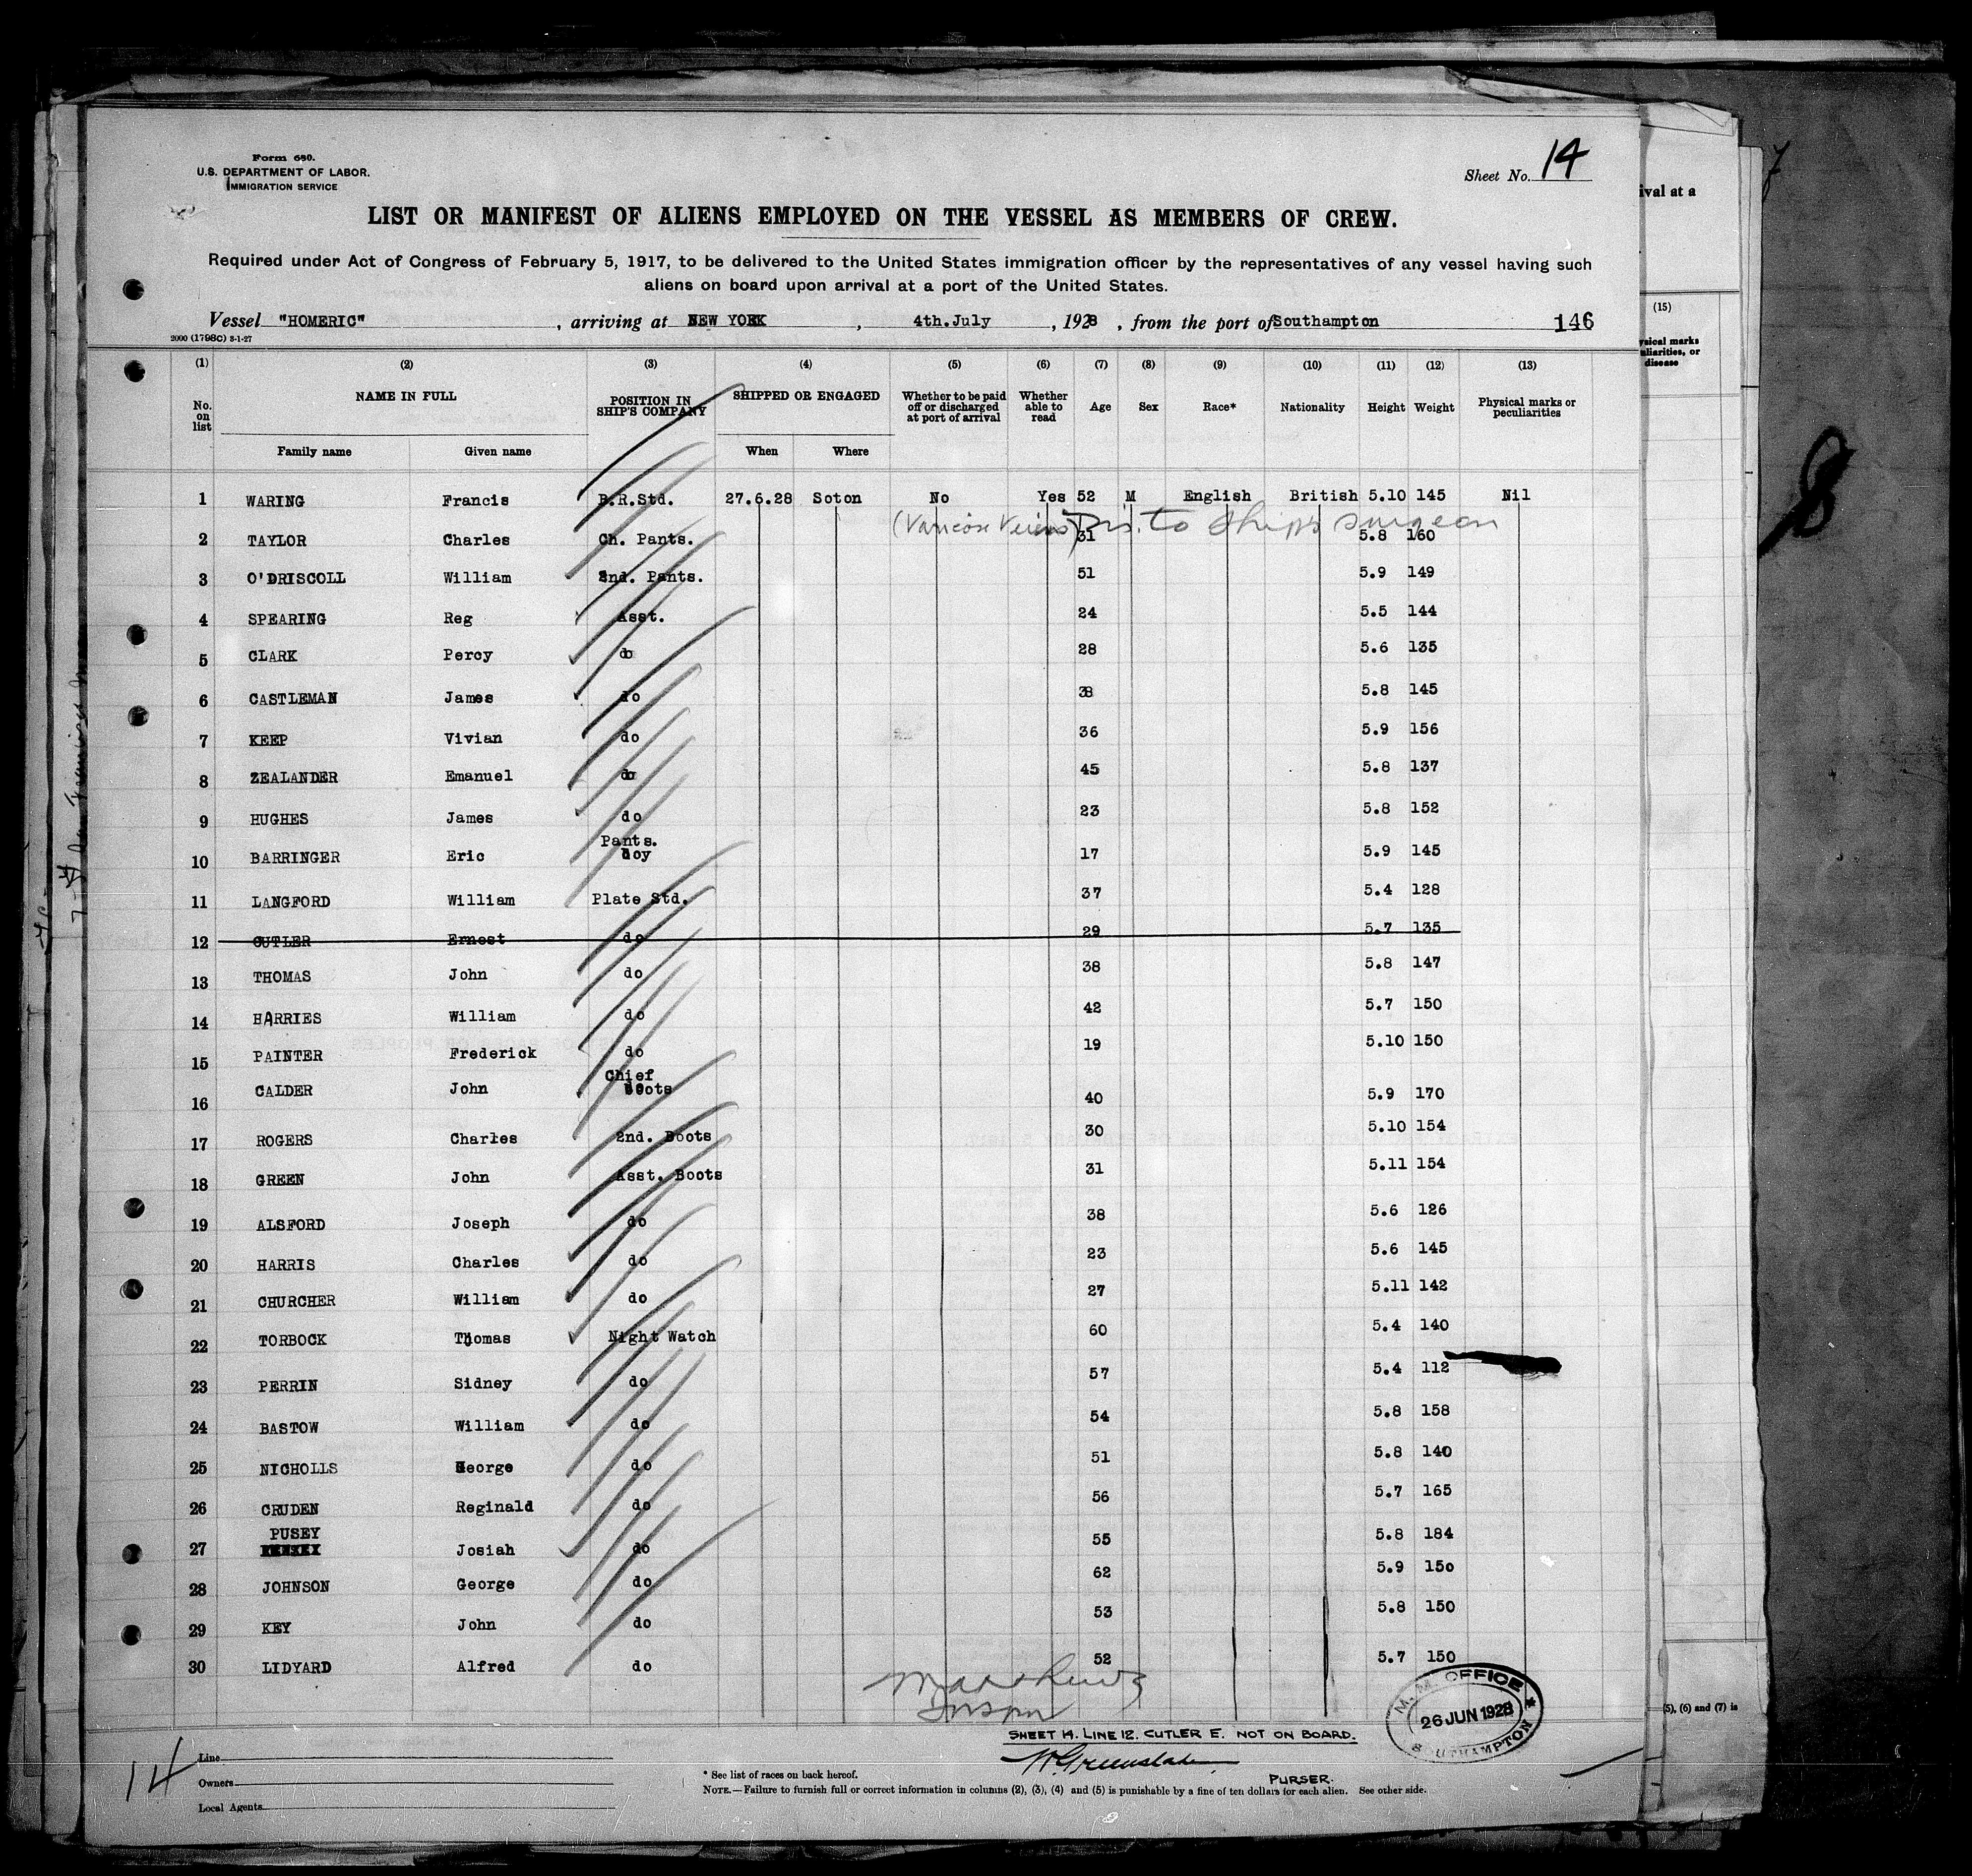 Form 680.
U.S. DEPARTMENT OF LABOR.
IMMIGRATION SERVICE
Sheet No. 14
LIST OR MANIFEST OF ALIENS EMPLOYED ON THE VESSEL AS MEMBERS OF CREW.
Required under Act of Congress of February 5, 1917, to be delivered to the United States immigration officer by the representatives of any vessel having such
aliens on board upon arrival at a port of the United States.
Vessel "HOMERIC", arriving at NEW YORK, 4th.July, 1928, from the port of Southampton 146
2000 (1798C) 3-1-27
(1) (2) (3) (4) (5) (6) (7) (8) (9) (10) (11) (12) (13)
No. on list NAME IN FULL POSITION IN SHIP'S COMPANY SHIPPED OR ENGAGED Whether to be paid off or discharged at port of arrival Whether able to read Age Sex Race* Nationality Height Weight Physical marks or peculiarities
Family name Given name When Where
1 WARING Francis B.R.Std. 27.6.28 Soton No Yes 52 M English British 5.10 145 Nil
(Varicose Veins) Dis. to Ship's surgeon
2 TAYLOR Charles Ch. Pants. 31 5.8 160
3 O'DRISCOLL William 2nd. Pants. 51 5.9 149
4 SPEARING Reg Asst. 24 5.5 144
5 CLARK Percy do 28 5.6 135
6 CASTLEMAN James do 38 5.8 145
7 KEEP Vivian do 36 5.9 156
8 ZEALANDER Emanuel do 45 5.8 137
9 HUGHES James do 23 5.8 152
10 BARRINGER Eric Pants. boy 17 5.9 145
11 LANGFORD William Plate Std. 37 5.4 128
12 CUTLER Ernest do 29 5.7 135
13 THOMAS John do 38 5.8 147
14 HARRIES William do 42 5.7 150
15 PAINTER Frederick do 19 5.10 150
16 CALDER John Chief Boots 40 5.9 170
17 ROGERS Charles 2nd. Boots 30 5.10 154
18 GREEN John Asst. Boots 31 5.11 154
19 ALSFORD Joseph do 38 5.6 126
20 HARRIS Charles do 23 5.6 145
21 CHURCHER William do 27 5.11 142
22 TORBOCK Thomas Night Watch 60 5.4 140
23 PERRIN Sidney do 57 5.4 112
24 BASTOW William do 54 5.8 158
25 NICHOLLS George do 51 5.8 140
26 CRUDEN Reginald do 56 5.7 165
27 PUSEY Josiah do 55 5.8 184
28 JOHNSON George do 62 5.9 150
29 KEY John do 53 5.8 150
30 LIDYARD Alfred do 52 5.7 150
Matthews
Inspr
M. M. OFFICE
26 JUN 1928
SOUTHAMPTON
SHEET 14. LINE 12. CUTLER E. NOT ON BOARD.
PURSER.
14
Line
Owners
Local Agents
* See list of races on back hereof.
NOTE.—Failure to furnish full or correct information in columns (2), (3), (4) and (5) is punishable by a fine of ten dollars for each alien. See other side.
ival at a
(15)
ysical marks
uliarities, or
disease
(5), (6) and (7) is